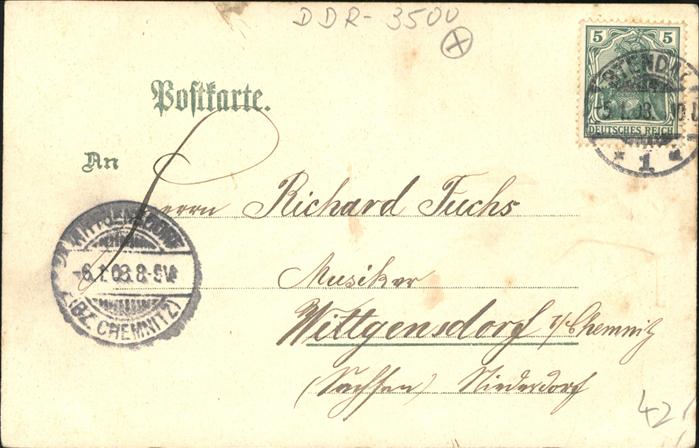 DDR-3500
5 5
DEUTSCHES REICH
STENDAL
-5.1.03. 10.
* 1 *
Postkarte.
An
Herrn Richard Fuchs
Musiker
Wittgensdorf b/Chemnitz
(Sachsen) Niederdorf
WITTGENSDORF
-6.1.03.8-9V.
(BZ. CHEMNITZ)
42